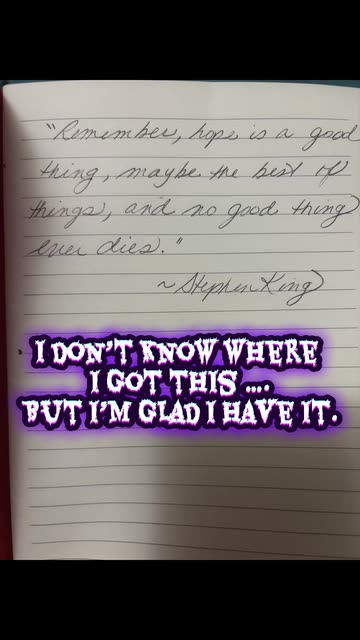 "Remember, hope is a good
thing, maybe the best of
things, and no good thing
ever dies."
~Stephen King
I DON'T KNOW WHERE
I GOT THIS ....
BUT I'M GLAD I HAVE IT.